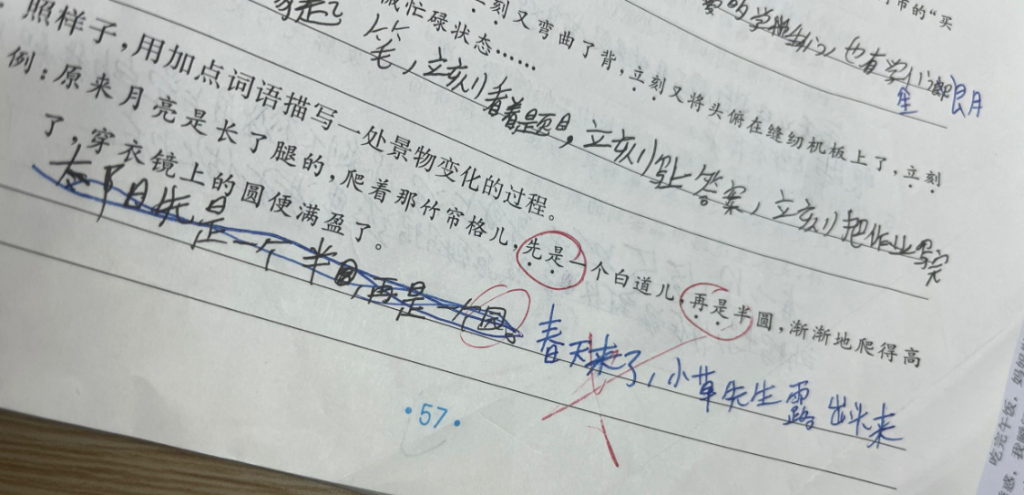 带的“买
累的学
也有
里 朗月
立刻又弯曲了背，立刻又将头俯在缝纫机板上了，立刻
忙碌状态……
笔，立刻看着题目，立刻写上答案，立刻把作业写完
照样子，用加点词语描写一处景物变化的过程。
例：原来月亮是长了腿的，爬着那竹帘格儿，先是一个白道儿，再是半圆，渐渐地爬得高
了，穿衣镜上的圆便满盈了。
太阳先是一个半圆，再是一个圆。
春天来了，小草先生露出头来
·57·
吃完午饭，